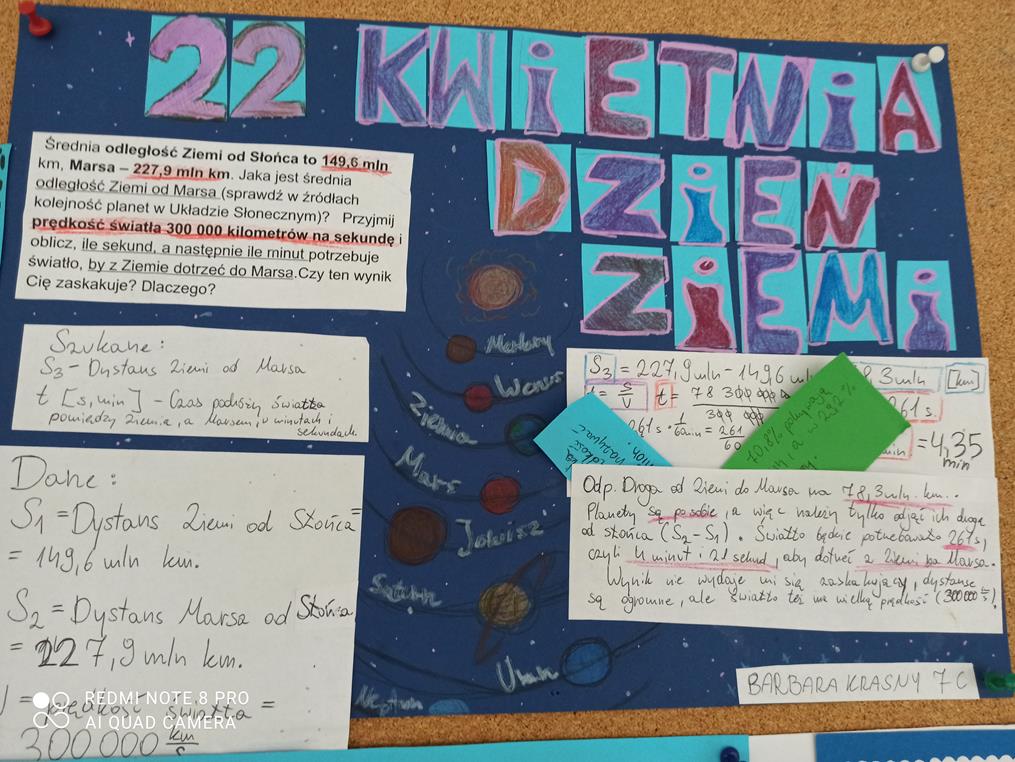 22 KWiETNiA
DZiEŃ
ZiEMi
Średnia odległość Ziemi od Słońca to 149,6 mln
km, Marsa – 227,9 mln km. Jaka jest średnia
odległość Ziemi od Marsa (sprawdź w źródłach
kolejność planet w Układzie Słonecznym)? Przyjmij
prędkość światła 300 000 kilometrów na sekundę i
oblicz, ile sekund, a następnie ile minut potrzebuje
światło, by z Ziemie dotrzeć do Marsa.Czy ten wynik
Cię zaskakuje? Dlaczego?
Szukane:
S3 - Dystans Ziemi od Marsa
t [s, min] - Czas podróży światła
pomiędzy Ziemią, a Marsem, w minutach i
sekundach.
Dane:
S1 = Dystans Ziemi od Słońca =
= 149,6 mln km.
S2 = Dystans Marsa od Słońca
= 227,9 mln km.
światła =
300000 km/s
Merkury
Wenus
Ziemia
Mars
Jowisz
Saturn
Uran
Neptun
S3 = 227,9 mln - 149,6 mln 8,3 mln [km]
t = s/v t = 78 300 000
300 000 261 s.
261 s · 1/60 min = 261/60 = 4,35
min
70,8%
292%
Odp. Droga od Ziemi do Marsa ma 78,3 mln. km..
Planety są po sobie, a więc należy tylko odjąć ich drogę
od słońca (S2 - S1). Światło będzie potrzebowało 261 s,
czyli 4 minut i 21 sekund, aby dotrzeć z Ziemi na Marsa.
Wynik nie wydaje mi się zaskakujący, dystanse
są ogromne, ale światło też ma wielką prędkość (300000 km/s).
BARBARA KRASNY 7C
REDMI NOTE 8 PRO
AI QUAD CAMERA